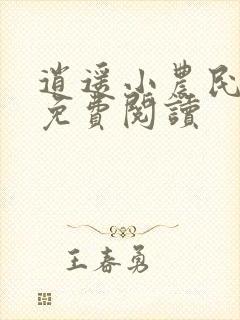 逍遥小農民
免費閱讀
王春勇